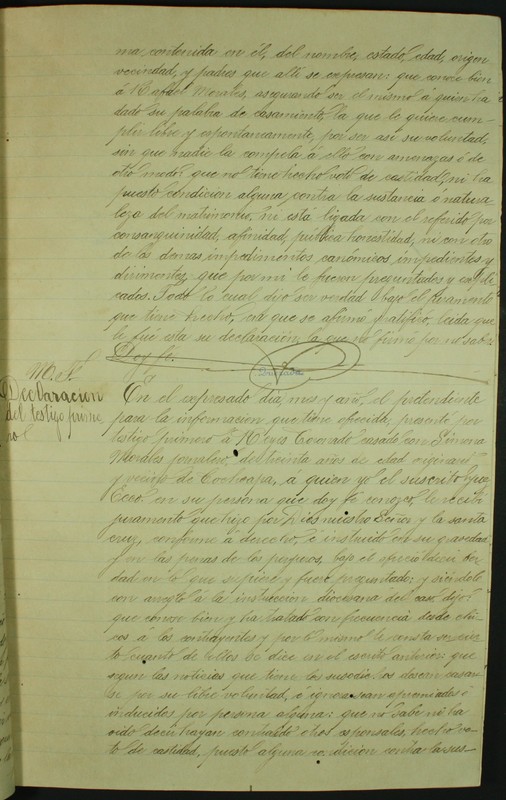 ma contenida en él, del nombre, estado, edad, origen
vecindad, y padres que allí se expresan: que conoce bien
á Rafael Morales, asegurando ser el mismo á quien ha
dado su palabra de casamiento, la que le quiere cum-
plir libre y espontaneamente, por ser así su voluntad,
sin que nadie la compela á ello con amenazas ó de
otro modo: que no tiene hecho voto de castidad, ni ha
puesto condicion alguna contra la sustancia ó natura
leza del matrimonio, ni está ligada con el referido por
consanguinidad, afinidad, pública honestidad, ni con otro
de los demas impedimentos canónicos impedientes y
dirimentes, que por mi le fueron preguntados y expli
cados. Todo lo cual dijo ser verdad bajo el juramento
que tiene hecho, en que se afirmó y ratificó, leida que
le fué esta su declaracion, la que no firmó por no saber
Doy fe.
M. S.
Declaracion
del testigo prime
ro
En el expresado dia, mes y año, el pretendiente
para la informacion que tiene ofrecida, presentó por
testigo primero á Reyes Coronado casado con Simona
Morales jornalero, de treinta años de edad originario
y vecino de Cochoapa, á quien yo el suscrito
en su persona que doy fe conozco, le recibí
juramento que hizo por Dios nuestro Señor y la santa
cruz, conforme á derecho, é instruido en su gravedad
y en las penas de los perjuros, bajo el ofreció decir ver
dad en lo que supiere y fuere preguntado; y siéndolo
con arreglo á la instruccion diocesana del caso dijo:
que conoce bien y ha tratado con frecuencia desde chi-
cos á los contrayentes y por lo mismo le consta ser cier
to cuanto de ellos se dice en el escrito anterior: que
segun las noticias que tiene los susodichos desean casar
se por su libre voluntad, é ignora sean apremiados ó
inducidos por persona alguna: que no sabe ni ha
oido decir hayan contraido otros esponsales, hecho vo-
to de castidad, puesto alguna condicion contra la sus-